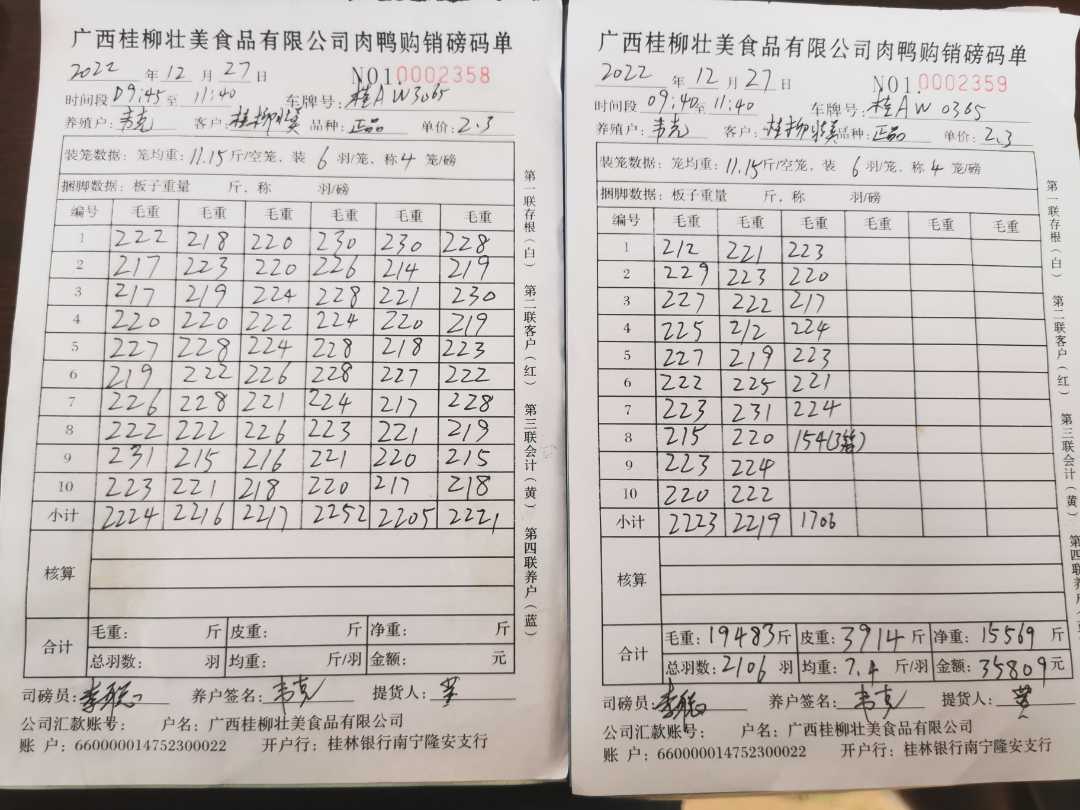 广西桂柳壮美食品有限公司肉鸭购销磅码单
2022 年 12 月 27 日 NO1.0002358
时间段 09:45 至 11:40 车牌号: 桂AW3065
养殖户: 韦克 客户: 桂柳壮美 品种: 正品 单价: 2.3
装笼数据: 笼均重: 11.15 斤/空笼、装 6 羽/笼、称 4 笼/磅
捆脚数据: 板子重量 斤, 称 羽/磅
编号 毛重 毛重 毛重 毛重 毛重 毛重
1 222 218 220 230 230 228
2 217 223 220 226 214 219
3 217 219 224 228 221 230
4 220 220 222 224 220 219
5 227 228 224 228 218 223
6 219 222 226 228 227 222
7 226 228 221 224 217 228
8 222 222 226 223 221 219
9 231 215 216 221 220 215
10 223 221 218 220 217 218
小计 2224 2216 2217 2252 2205 2221
核算
合计 毛重: 斤 皮重: 斤 净重: 斤
总羽数: 羽 均重: 斤/羽 金额: 元
司磅员: 养户签名: 韦克 提货人:
公司汇款账号: 户名: 广西桂柳壮美食品有限公司
账 户: 660000014752300022 开户行: 桂林银行南宁隆安支行
第一联存根(白) 第二联客户(红) 第三联会计(黄) 第四联养户(蓝)
广西桂柳壮美食品有限公司肉鸭购销磅码单
2022 年 12 月 27 日 NO1.0002359
时间段 09:40 至 11:40 车牌号: 桂AW0365
养殖户: 韦克 客户: 桂柳壮美 品种: 正品 单价: 2.3
装笼数据: 笼均重: 11.15 斤/空笼、装 6 羽/笼、称 4 笼/磅
捆脚数据: 板子重量 斤, 称 羽/磅
编号 毛重 毛重 毛重 毛重 毛重 毛重
1 212 221 223
2 229 223 220
3 227 222 217
4 225 212 224
5 227 219 223
6 222 225 221
7 223 231 224
8 215 220 154(3箱)
9 223 224
10 220 222
小计 2223 2219 1706
核算
合计 毛重: 19483 斤 皮重: 3914 斤 净重: 15569 斤
总羽数: 2106 羽 均重: 7.4 斤/羽 金额: 35809 元
司磅员: 养户签名: 韦克 提货人:
公司汇款账号: 户名: 广西桂柳壮美食品有限公司
账 户: 660000014752300022 开户行: 桂林银行南宁隆安支行
第一联存根(白) 第二联客户(红) 第三联会计(黄) 第四联养